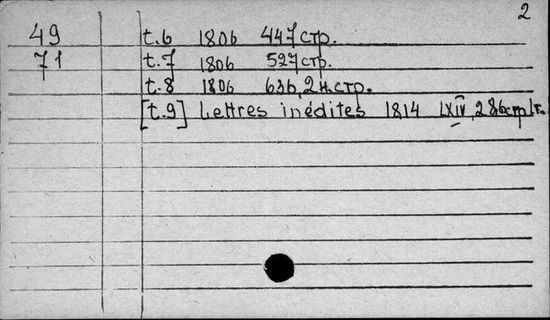 2
49 t.6 1806 447стр.
71 t.7 1806 527стр.
t.8 1806 636, 2н.стр.
[t.9] Lettres inédites 1814 LXIV, 286стр